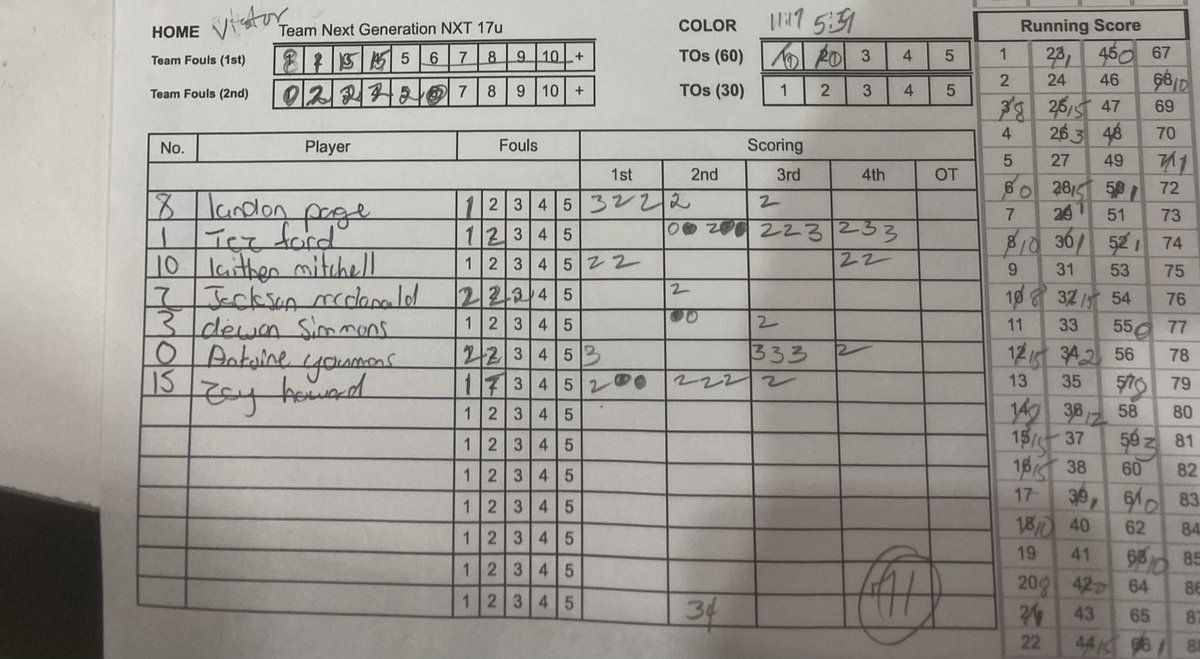 HOME Visitor Team Next Generation NXT 17u COLOR 11:17 5:39
Running Score
Team Fouls (1st) 5 6 7 8 9 10 +
TOs (60) 3 4 5
Team Fouls (2nd) 7 8 9 10 +
TOs (30) 1 2 3 4 5
No. Player Fouls Scoring
1st 2nd 3rd 4th OT
8 landon page 1 2 3 4 5 3 2 2 2 2
1 Tez ford 1 2 3 4 5 2 2 3 2 3 3
10 kaithen mitchell 1 2 3 4 5 2 2 2 2
2 Jackson mcdonald 4 5 2
3 dewon Simmons 1 2 3 4 5 2
0 Antoine youmons 3 4 5 3 3 3 3 2
15 Zay howard 1 3 4 5 2 2 2 2 2
1 2 3 4 5
1 2 3 4 5
1 2 3 4 5
1 2 3 4 5
1 2 3 4 5
1 2 3 4 5
1 2 3 4 5 34 71
1 23, 45 0 67
2 24 46 68 10
3 8 25 15 47 69
4 26 3 48 70
5 27 49 71 1
6 0 28 15 50 1 72
7 29 1 51 73
8 10 30 1 52 1 74
9 31 53 75
10 8 32 15 54 76
11 33 55 0 77
12 15 34 2 56 78
13 35 57 8 79
14 36 12 58 80
15 15 37 59 3 81
16 15 38 60 82
17 39, 61 0 83
18 10 40 62 84
19 41 63 10 85
20 8 42 64 86
21 43 65 87
22 44 15 66 1